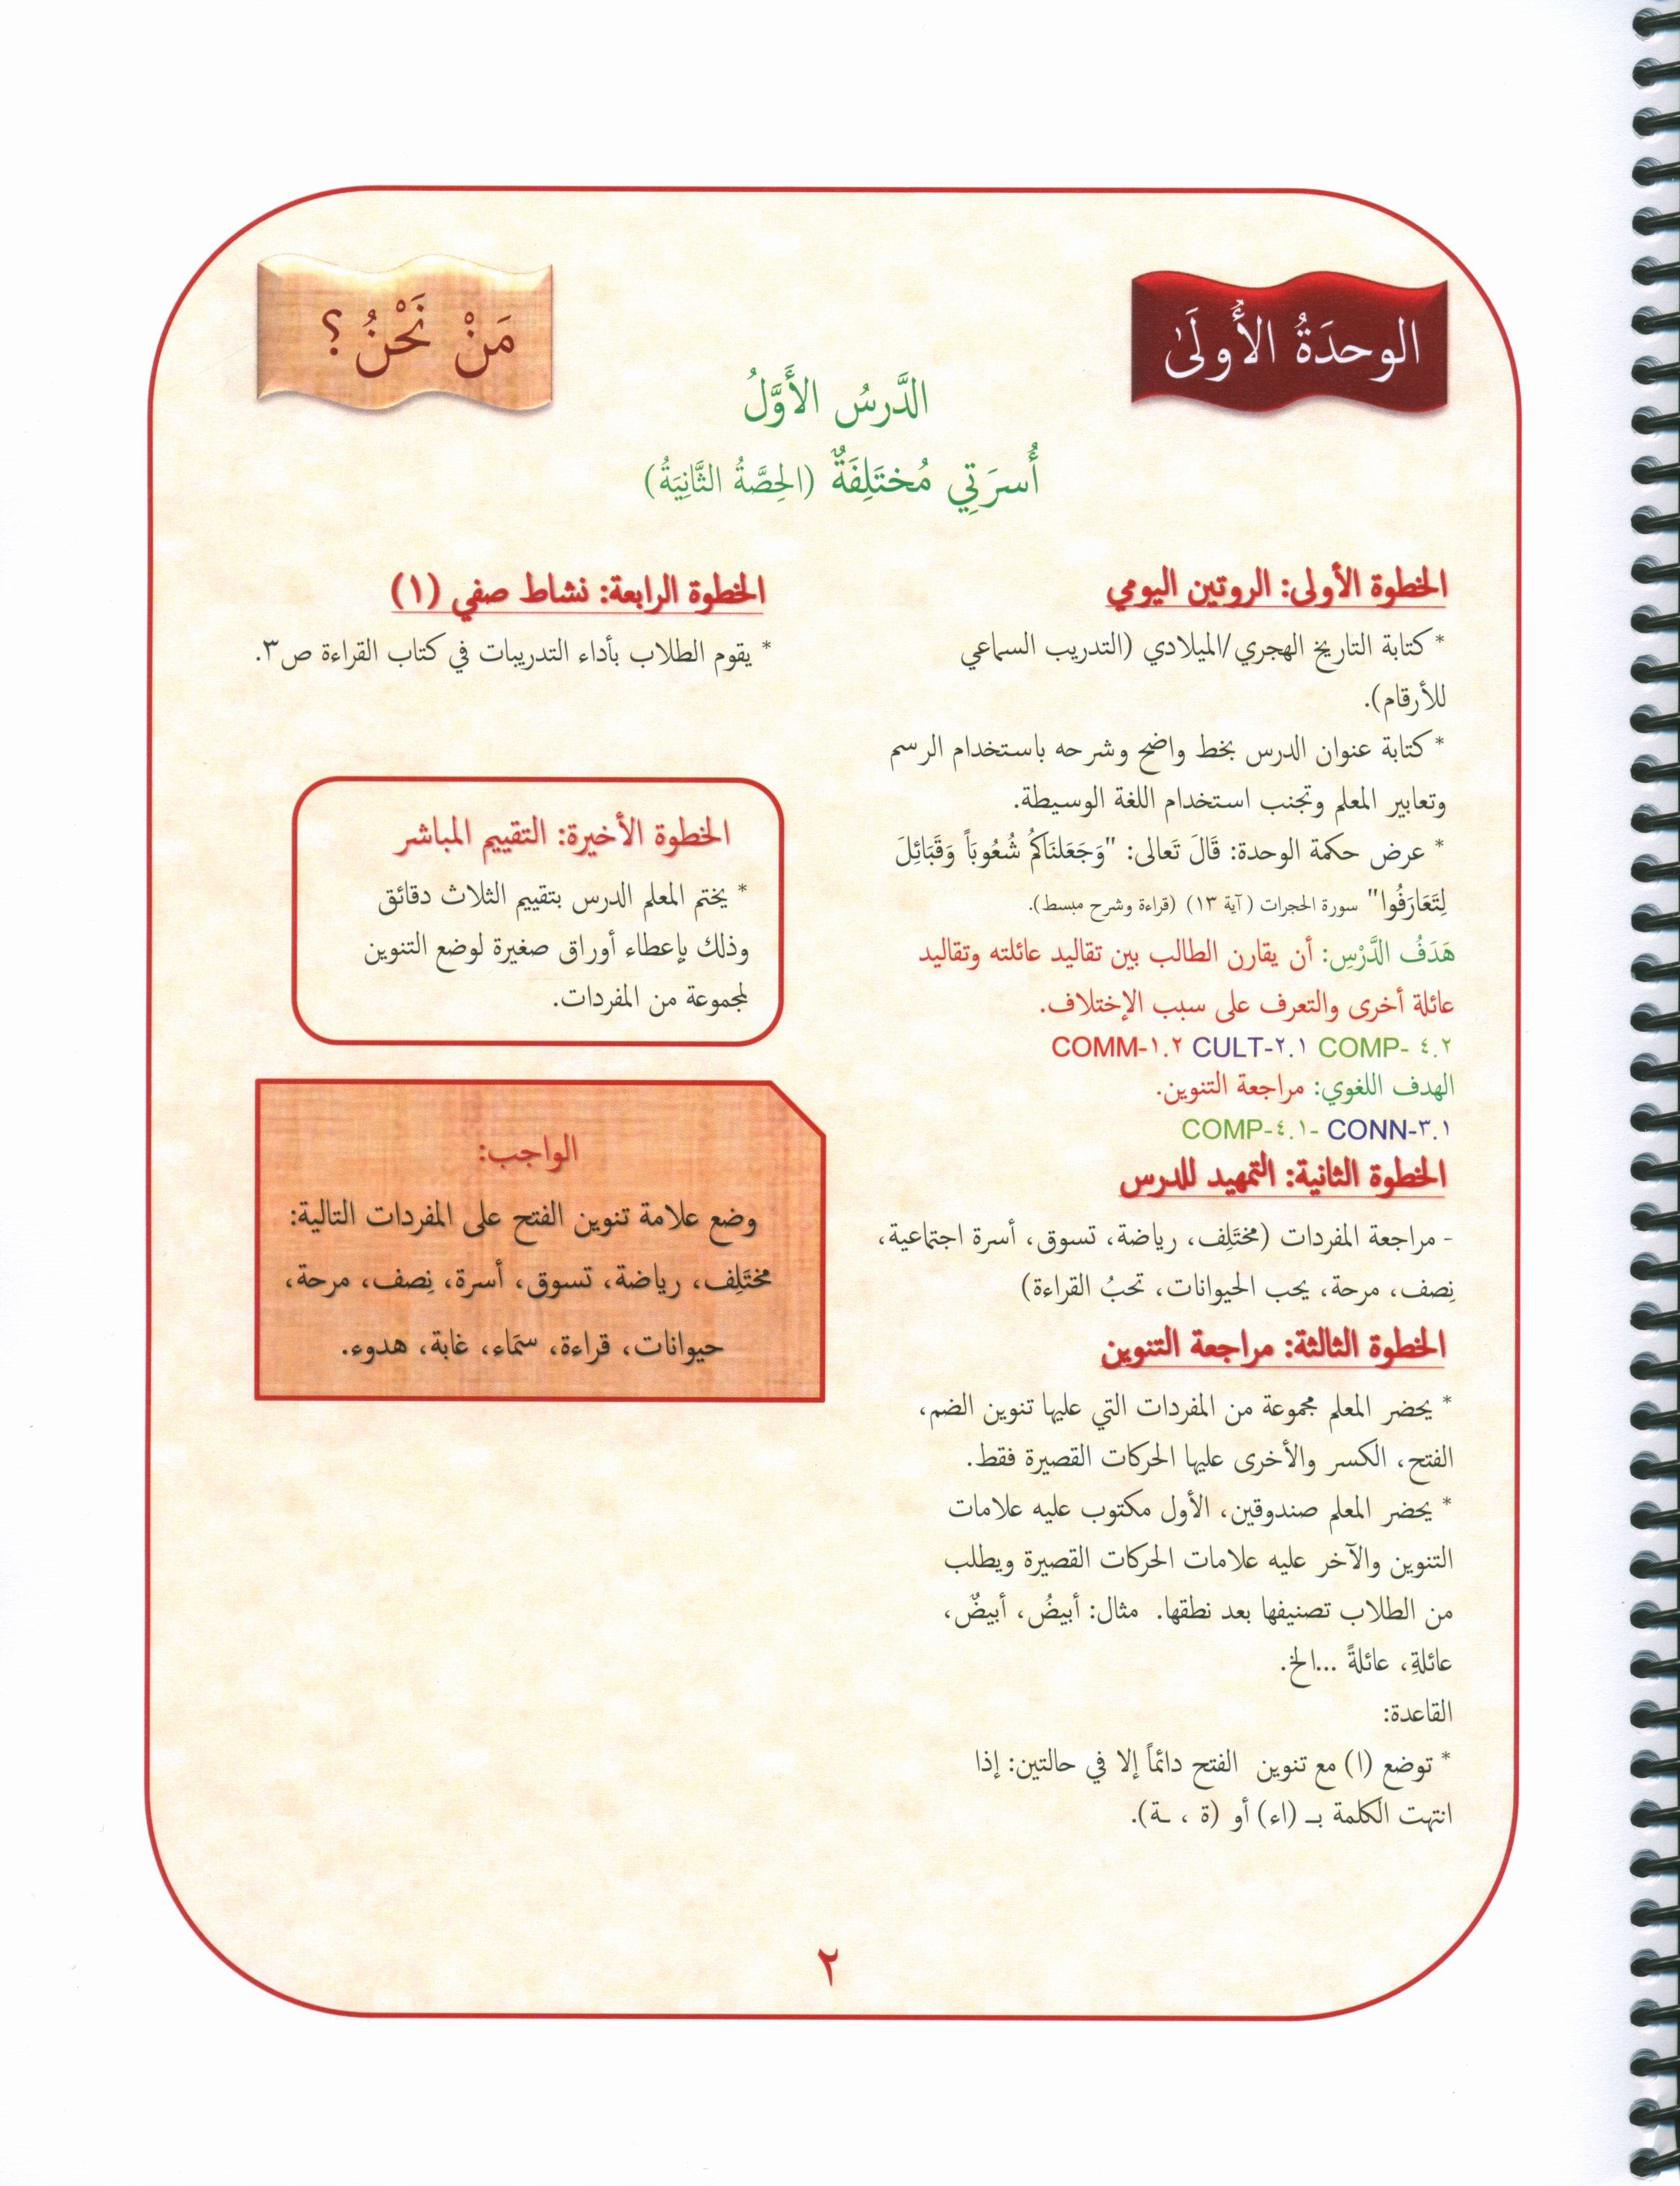 الوحدَةُ الأُولَىٰ
مَنْ نَحْنُ ؟
الدَّرسُ الأَوَّلُ
أُسرَتِي مُختَلِفَةٌ (الحِصَّةُ الثَّانِيَةُ)
الخطوة الأولى: الروتين اليومي
* كتابة التاريخ الهجري/الميلادي (التدريب السماعي
للأرقام).
* كتابة عنوان الدرس بخط واضح وشرحه باستخدام الرسم
وتعابير المعلم وتجنب استخدام اللغة الوسيطة.
* عرض حكمة الوحدة: قَالَ تَعالى: "وَجَعَلنَاكُم شُعُوبَاً وَقَبَائِلَ
لِتَعَارَفُوا" سورة الحجرات (آية ١٣) (قراءة وشرح مبسط).
هَدَفُ الدَّرْسِ: أن يقارن الطالب بين تقاليد عائلته وتقاليد
عائلة أخرى والتعرف على سبب الإختلاف.
COMM-١.٢ CULT-٢.١ COMP- ٤.٢
الهدف اللغوي: مراجعة التنوين.
COMP-٤.١- CONN-٣.١
الخطوة الثانية: التمهيد للدرس
- مراجعة المفردات (مختَلِف، رياضة، تسوق، أسرة اجتماعية،
نِصف، مرحة، يحب الحيوانات، تحبُ القراءة)
الخطوة الثالثة: مراجعة التنوين
* يحضر المعلم مجموعة من المفردات التي عليها تنوين الضم،
الفتح، الكسر والأخرى عليها الحركات القصيرة فقط.
* يحضر المعلم صندوقين، الأول مكتوب عليه علامات
التنوين والآخر عليه علامات الحركات القصيرة ويطلب
من الطلاب تصنيفها بعد نطقها. مثال: أبيضُ، أبيضٌ،
عائلةِ، عائلةً ...الخ.
القاعدة:
* توضع (ا) مع تنوين الفتح دائماً إلا في حالتين: إذا
انتهت الكلمة بـ (اء) أو (ة ، ـة).
الخطوة الرابعة: نشاط صفي (١)
* يقوم الطلاب بأداء التدريبات في كتاب القراءة ص٣.
الخطوة الأخيرة: التقييم المباشر
* يختم المعلم الدرس بتقييم الثلاث دقائق
وذلك بإعطاء أوراق صغيرة لوضع التنوين
لمجموعة من المفردات.
الواجب:
وضع علامة تنوين الفتح على المفردات التالية:
مختَلِف، رياضة، تسوق، أسرة، نِصف، مرحة،
حيوانات، قراءة، سمَاء، غابة، هدوء.
٢